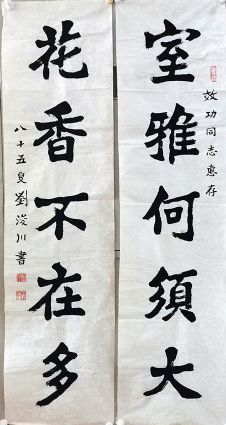 效功同志惠存
室雅何須大
花香不在多
八十五叟劉浚川書